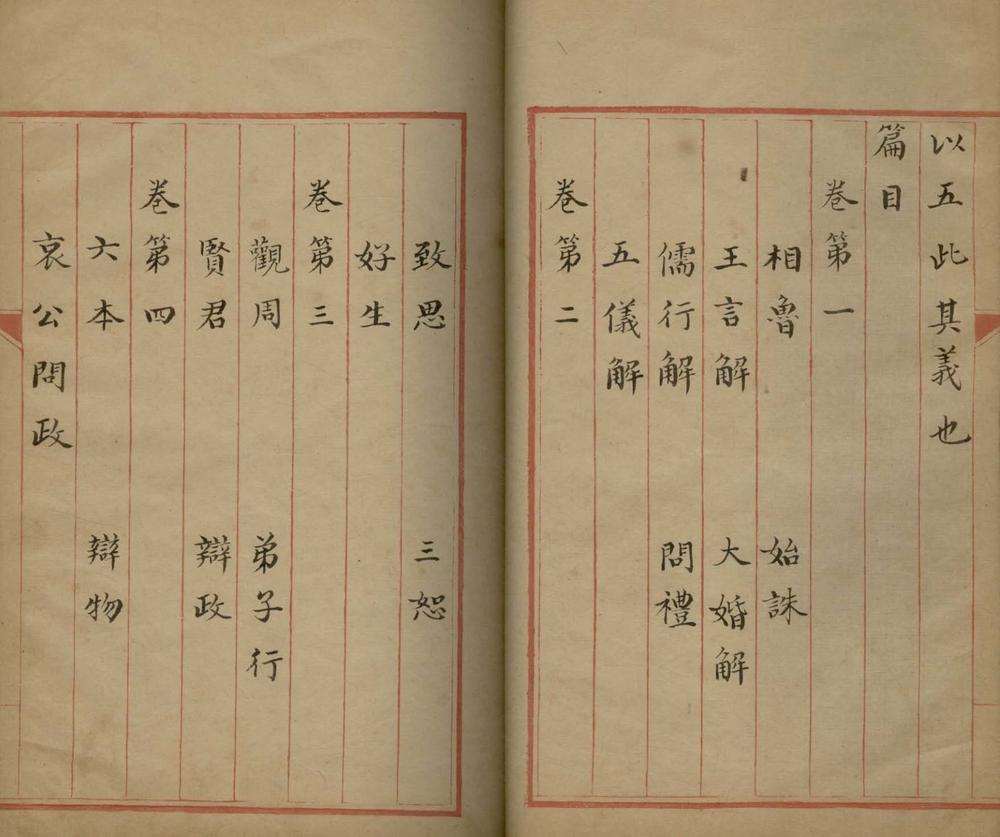 以五此其義也
篇目
卷第一
相魯 始誅
王言解 大婚解
儒行解 問禮
五儀解
卷第二
致思 三恕
好生
卷第三
觀周 弟子行
賢君 辯政
卷第四
六本 辯物
哀公問政